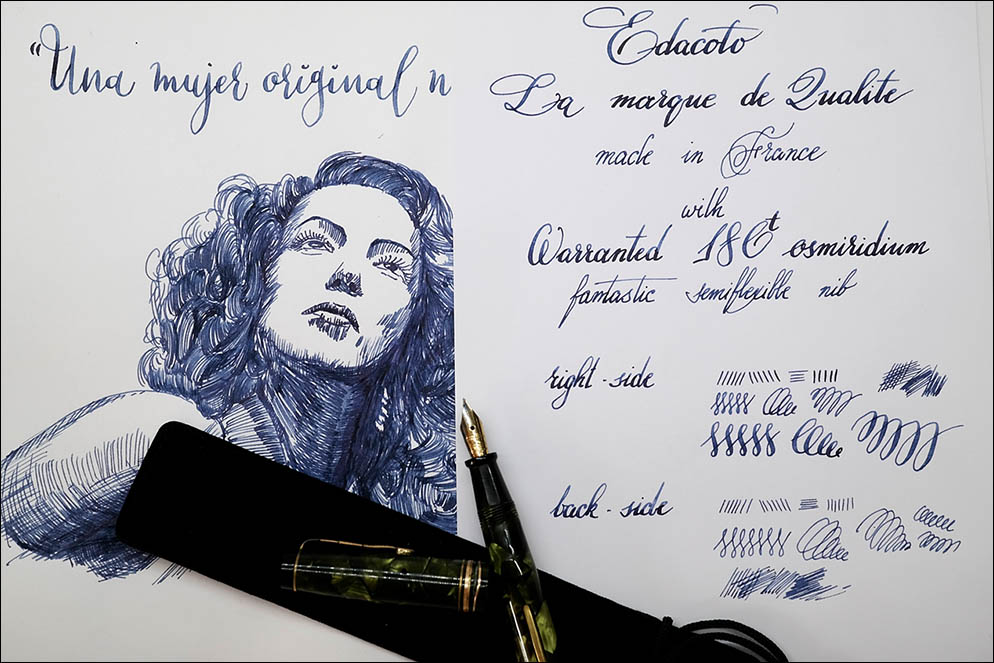 "Una mujer original n
Edacoto
La marque de Qualite
made in France
with
Warranted 18Ct osmiridium
fantastic semiflexible nib
right-side
back-side